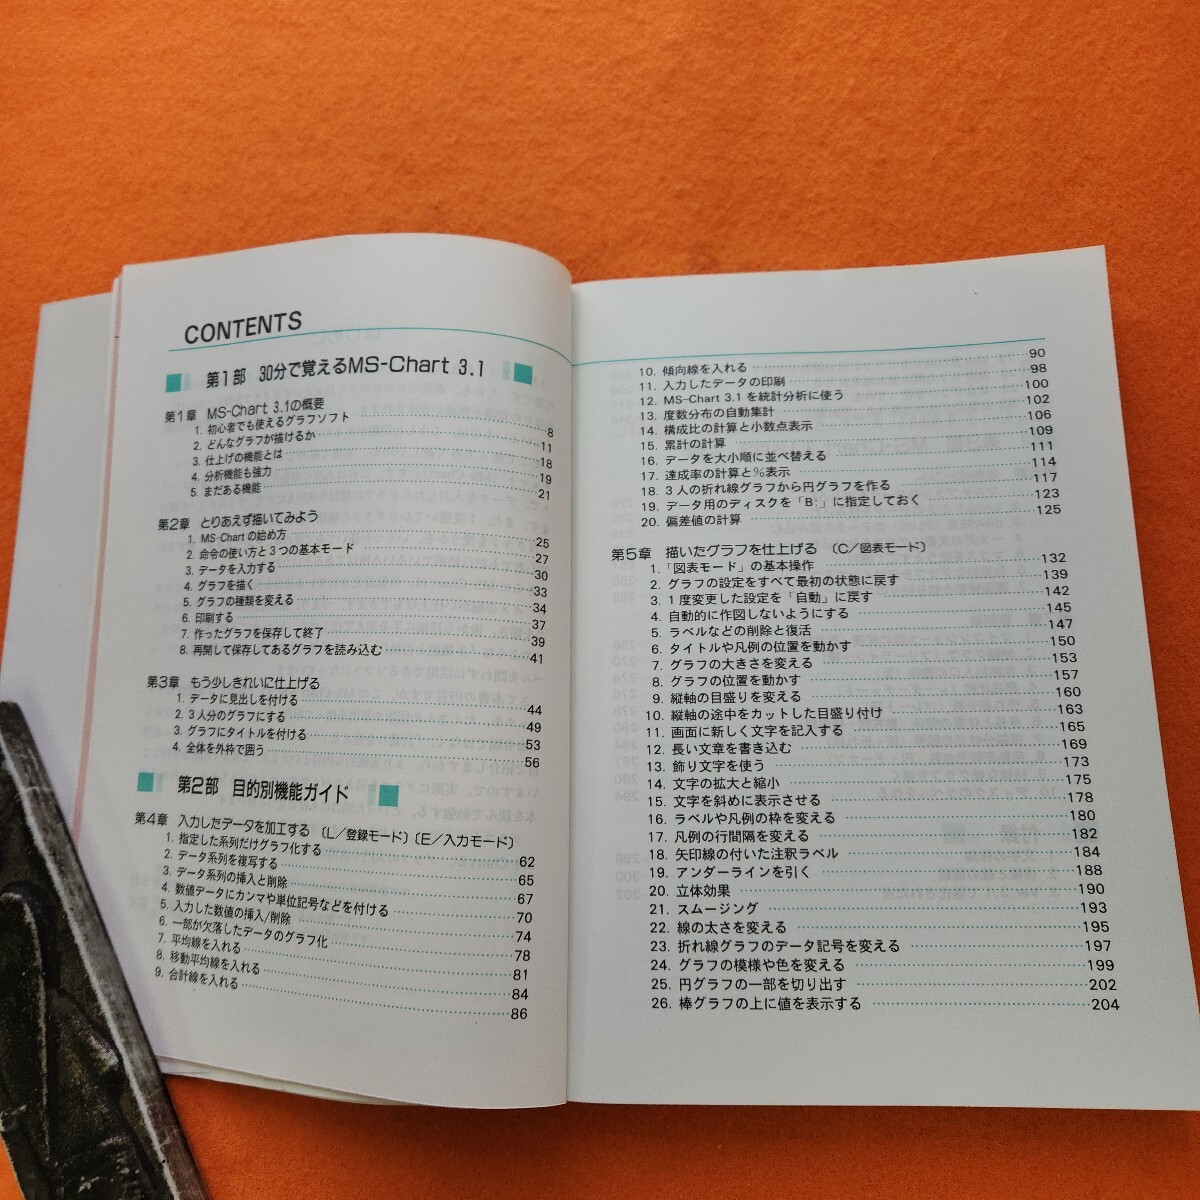 CONTENTS
第1部 30分で覚えるMS-Chart 3.1
第1章 MS-Chart 3.1の概要
1. 初心者でも使えるグラフソフト 8
2. どんなグラフが描けるか 11
3. 仕上げの機能とは 18
4. 分析機能も強力 19
5. まだある機能 21
第2章 とりあえず描いてみよう
1. MS-Chart の始め方 25
2. 命令の使い方と3つの基本モード 27
3. データを入力する 30
4. グラフを描く 33
5. グラフの種類を変える 34
6. 印刷する 37
7. 作ったグラフを保存して終了 39
8. 再開して保存してあるグラフを読み込む 41
第3章 もう少しきれいに仕上げる
1. データに見出しを付ける 44
2. 3人分のグラフにする 49
3. グラフにタイトルを付ける 53
4. 全体を外枠で囲う 56
第2部 目的別機能ガイド
第4章 入力したデータを加工する 〔L/登録モード〕〔E/入力モード〕
1. 指定した系列だけグラフ化する 62
2. データ系列を複写する 65
3. データ系列の挿入と削除 67
4. 数値データにカンマや単位記号などを付ける 70
5. 入力した数値の挿入/削除 74
6. 一部が欠落したデータのグラフ化 78
7. 平均線を入れる 81
8. 移動平均線を入れる 84
9. 合計線を入れる 86
10. 傾向線を入れる 90
11. 入力したデータの印刷 98
12. MS-Chart 3.1 を統計分析に使う 100
13. 度数分布の自動集計 102
14. 構成比の計算と小数点表示 106
15. 累計の計算 109
16. データを大小順に並べ替える 111
17. 達成率の計算と%表示 114
18. 3人の折れ線グラフから円グラフを作る 117
19. データ用のディスクを「B:」に指定しておく 123
20. 偏差値の計算 125
第5章 描いたグラフを仕上げる 〔C/図表モード〕
1.「図表モード」の基本操作 132
2. グラフの設定をすべて最初の状態に戻す 139
3. 1度変更した設定を「自動」に戻す 142
4. 自動的に作図しないようにする 145
5. ラベルなどの削除と復活 147
6. タイトルや凡例の位置を動かす 150
7. グラフの大きさを変える 153
8. グラフの位置を動かす 157
9. 縦軸の目盛りを変える 160
10. 縦軸の途中をカットした目盛り付け 163
11. 画面に新しく文字を記入する 165
12. 長い文章を書き込む 169
13. 飾り文字を使う 173
14. 文字の拡大と縮小 175
15. 文字を斜めに表示させる 178
16. ラベルや凡例の枠を変える 180
17. 凡例の行間隔を変える 182
18. 矢印線の付いた注釈ラベル 184
19. アンダーラインを引く 188
20. 立体効果 190
21. スムージング 193
22. 線の太さを変える 195
23. 折れ線グラフのデータ記号を変える 197
24. グラフの模様や色を変える 199
25. 円グラフの一部を切り出す 202
26. 棒グラフの上に値を表示する 204